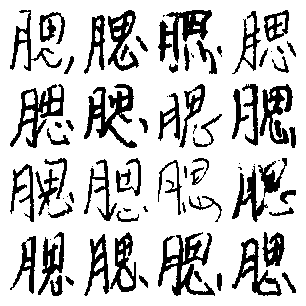 腮腮腮腮
腮腮腮腮
腮腮腮腮
腮腮腮腮